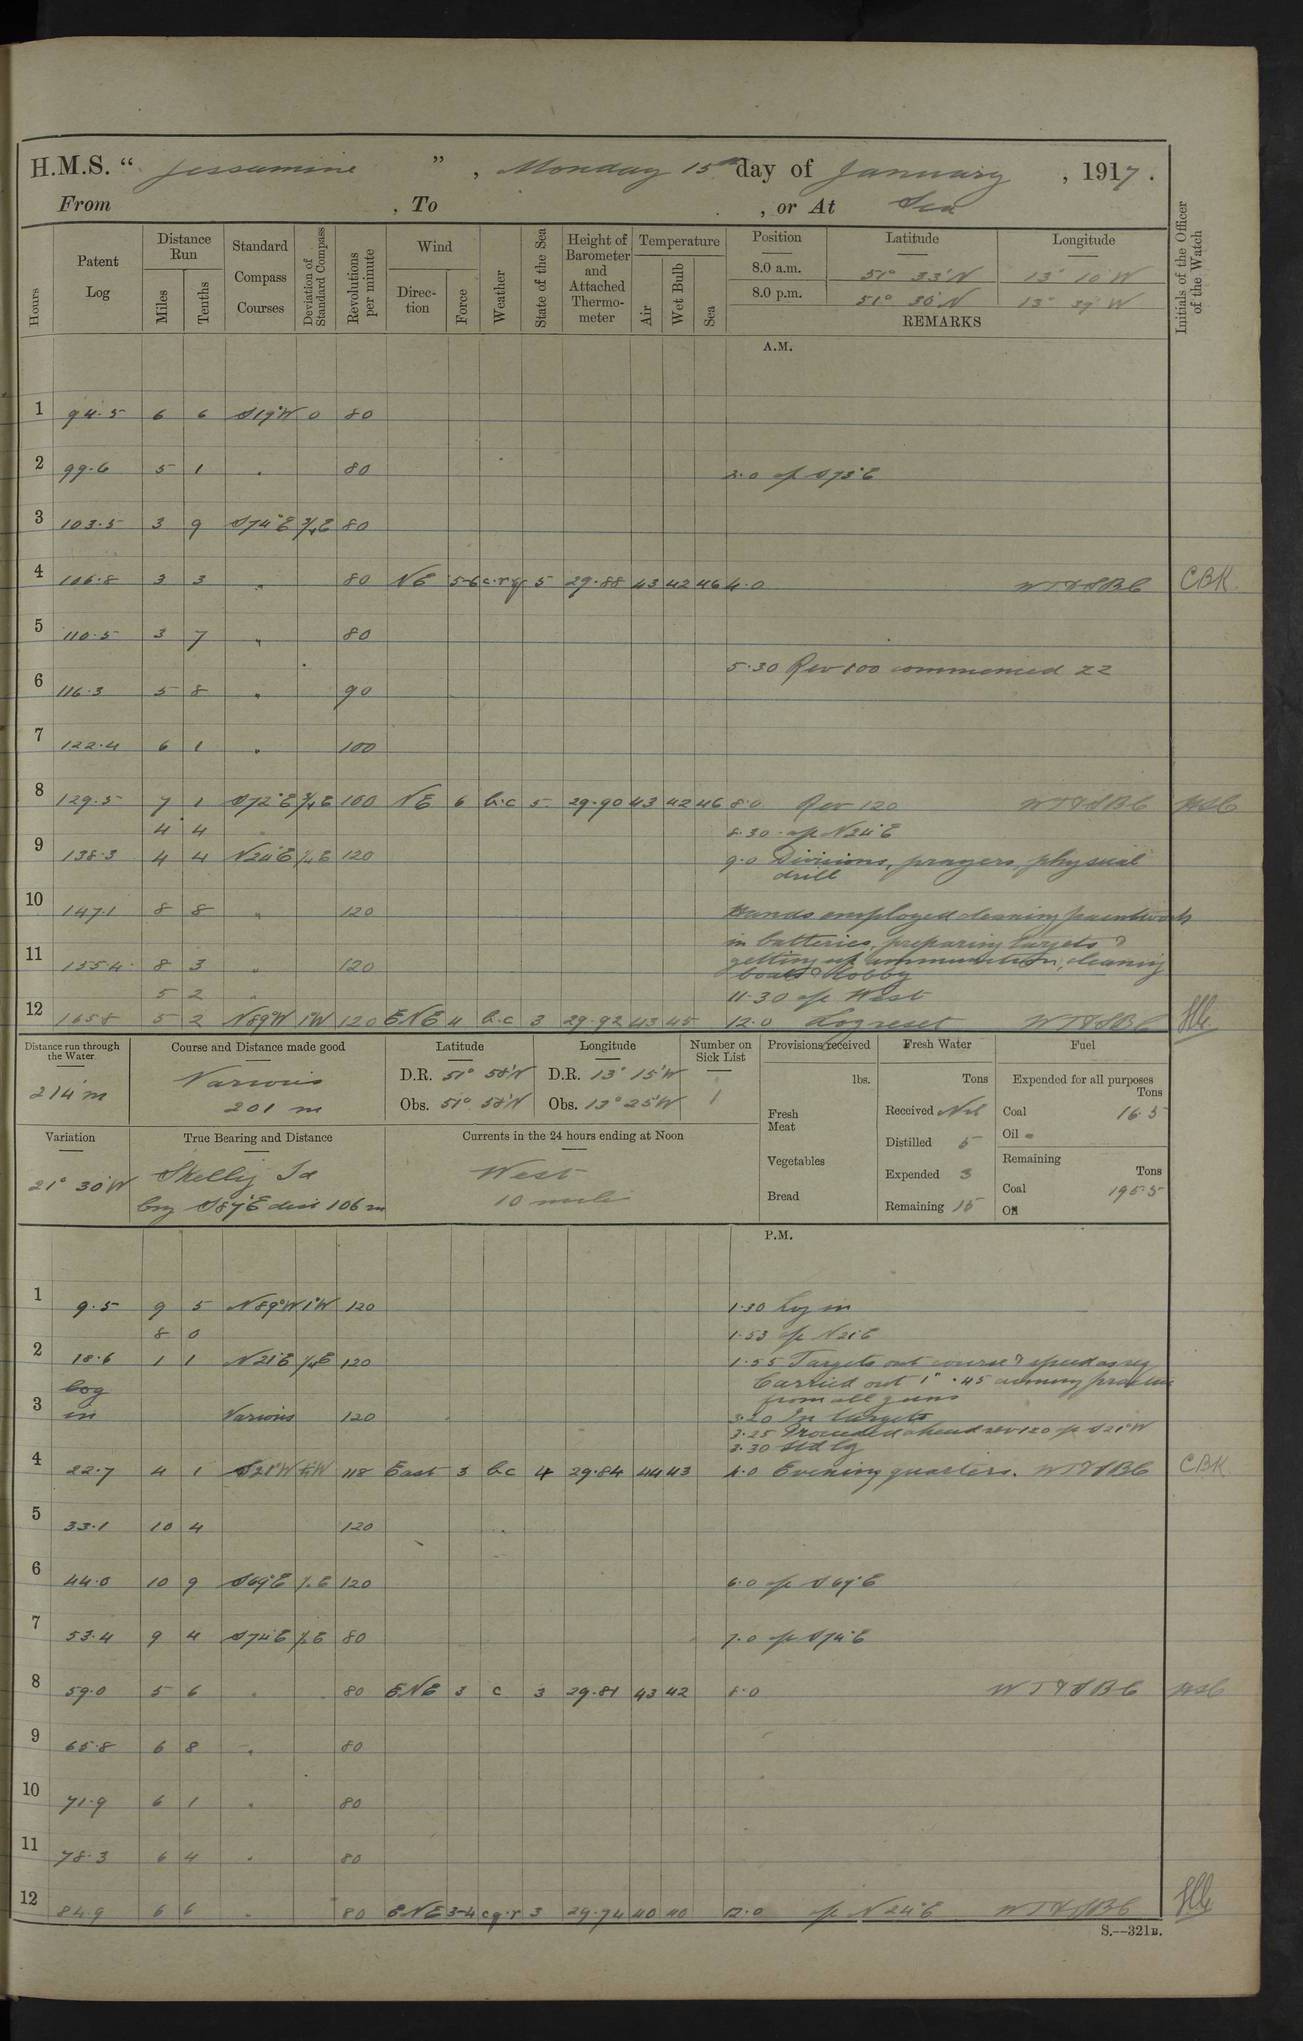 H.M.S. “ Jessamine ” , Monday 15th day of January , 1917 .
From , To , or At Sea
Hours
Patent Log
Distance Run
Miles
Tenths
Standard Compass Courses
Deviation of Standard Compass
Revolutions per minute
Wind
Direction
Force
Weather
State of the Sea
Height of Barometer and Attached Thermometer
Temperature
Air
Wet Bulb
Sea
Position Latitude Longitude
8.0 a.m. 51° 33'N 13° 10'W
8.0 p.m. 51° 36'N 13° 39'W
REMARKS
Initials of the Officer of the Watch
A.M.
1 94.5 6 6 S19°W 0 80
2 99.6 5 1 " 80 2.0 a/c S73°E
3 103.5 3 9 S74°E ¾E 80
4 106.8 3 3 " 80 NE 5-6 c.r.q 5 29.88 43 42 46 4.0 WT&SBC CBK
5 110.5 3 7 " 80
5.30 Rev 100 commenced ZZ
6 116.3 5 8 " 90
7 122.4 6 1 " 100
8 129.5 7 1 S72°E ¾E 100 NE 6 b.c 5 29.90 43 42 46 8.0 Rev 120 WT&SBC
4 4 " 8.30 a/c N24°E
9 138.3 4 4 N24°E ¼E 120 9.0 Divisions, prayers, physical
drill
10 147.1 8 8 " 120 Hands employed cleaning paintwork
in batteries, preparing targets &
11 155.4 8 3 " 120 getting up ammunition, cleaning
boats & lobby
5 2 " 11.30 a/c West
12 165.8 5 2 N89°W 1°W 120 ENE 4 b.c 3 29.92 43 45 12.0 Log reset WT&SBC
Distance run through the Water
214 m
Course and Distance made good
Various
201 m
Latitude
D.R. 51° 58'N
Obs. 51° 58'N
Longitude
D.R. 13° 15'W
Obs. 13° 25'W
Number on Sick List
1
Provisions received
lbs.
Fresh Meat
Vegetables
Bread
Fresh Water
Tons
Received Nil
Distilled 5
Expended 3
Remaining 15
Fuel
Expended for all purposes
Tons
Coal 16.5
Oil
Remaining
Tons
Coal 195.5
Oil
Variation
21° 30'W
True Bearing and Distance
Skellig Id
brg S87°E dist 106 m
Currents in the 24 hours ending at Noon
West
10 miles
P.M.
1 9.5 9 5 N89°W 1°W 120 1.30 Log in
8 0 1.53 a/c N21°E
2 18.6 1 1 N21°E ¼E 120 1.55 Targets out course & speed as req
Carried out 1" .45 aiming practice
from all guns
3 Log in Various 120 3.20 In targets
3.25 Proceeded ahead rev 120 a/c S21°W
3.30 Std lg
4 22.7 4 1 S21°W 118 East 3 b.c 4 29.84 44 43 4.0 Evening quarters. WT&SBC CBK
5 33.1 10 4 120
6 44.0 10 9 S69°E 120 6.0 a/c S69°E
7 53.4 9 4 S74°E 80 7.0 a/c S74°E
8 59.0 5 6 " 80 ENE 3 c 3 29.81 43 42 8.0 WT&SBC
9 65.8 6 8 " 80
10 71.9 6 1 " 80
11 78.3 6 4 " 80
12 84.9 6 6 " 80 ENE 3-4 c.q.r 3 29.74 40 40 12.0 a/c N24°E WT&SBC
S.—321B.